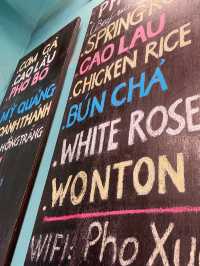 CƠM GÀ
CAO LẦU
PHỞ BÒ
MỲ QUẢNG
HOÀNH THÁNH
SPRING RO
CAO LẦU
CHICKEN RICE
.BÚN CHẢ
.WHITE ROSE
.WONTON
WIFI: Pho Xu